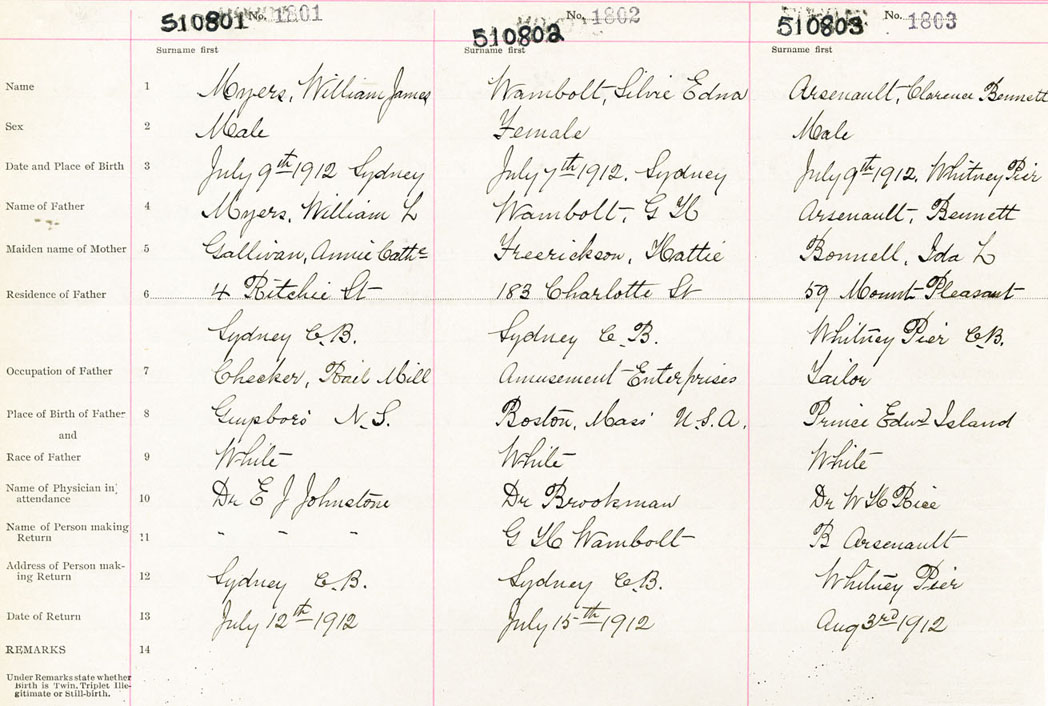 510801 No. 1801 510802 No. 1802 510803 No. 1803
Surname first Surname first Surname first
Name 1 Myers, William James Wambolt, Silvie Edna Arsenault, Clarence Bennett
Sex 2 Male Female Male
Date and Place of Birth 3 July 9th 1912 Sydney July 7th 1912. Sydney July 9th 1912. Whitney Pier
Name of Father 4 Myers, William L Wambolt, G H Arsenault, Bennett
Maiden name of Mother 5 Gallivan, Annie Cathe Freerickson, Hattie Bonnell, Ida L
Residence of Father 6 4 Ritchie St 183 Charlotte St 59 Mount Pleasant
Sydney C.B. Sydney C.B. Whitney Pier C.B.
Occupation of Father 7 Checker, Rail Mill Amusement Enterprises Tailor
Place of Birth of Father 8 Guysboro N.S. Boston, Mass U.S.A. Prince Edwd Island
and
Race of Father 9 White White White
Name of Physician in attendance 10 Dr E J Johnstone Dr Brookman Dr W H Rice
Name of Person making Return 11 " " " G H Wambolt B Arsenault
Address of Person making Return 12 Sydney C.B. Sydney C.B. Whitney Pier
Date of Return 13 July 12th 1912 July 15th 1912 Aug 3rd 1912
REMARKS 14
Under Remarks state whether
Birth is Twin, Triplet Ille-
gitimate or Still-birth.